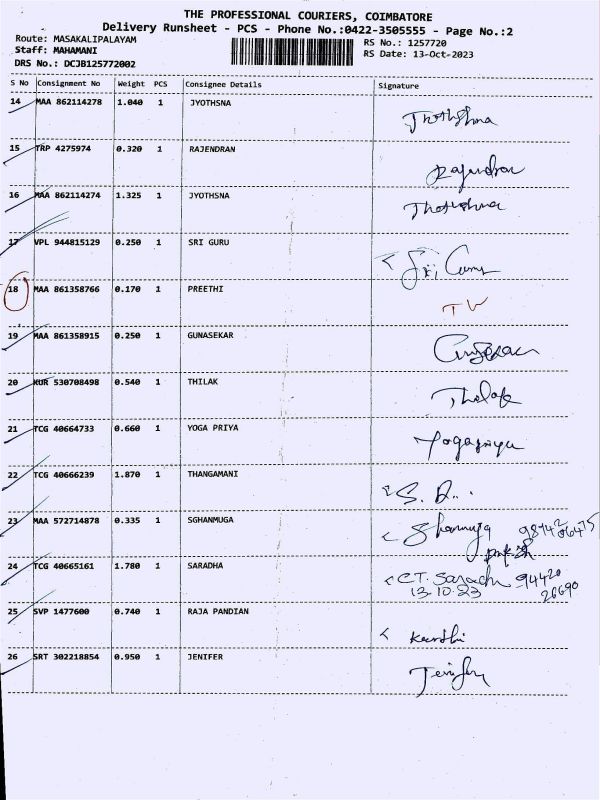 THE PROFESSIONAL COURIERS, COIMBATORE
Delivery Runsheet - PCS - Phone No.:0422-3505555 - Page No.:2
Route: MASAKALIPALAYAM RS No.: 1257720
Staff: MAHAMANI RS Date: 13-Oct-2023
DRS No.: DCJB125772002
S No Consignment No Weight PCS Consignee Details Signature
14 MAA 862114278 1.040 1 JYOTHSNA
15 TRP 4275974 0.320 1 RAJENDRAN Rajendran
16 MAA 862114274 1.325 1 JYOTHSNA
17 VPL 944815129 0.250 1 SRI GURU Sri Guru
18 MAA 861358766 0.170 1 PREETHI
19 MAA 861358915 0.250 1 GUNASEKAR
20 KUR 530708498 0.540 1 THILAK
21 TCG 40664733 0.660 1 YOGA PRIYA Yogapriya
22 TCG 40666239 1.870 1 THANGAMANI
23 MAA 572714878 0.335 1 SGHANMUGA
24 TCG 40665161 1.780 1 SARADHA C.T. Saradha 94420
13.10.23 26690
25 SVP 1477600 0.740 1 RAJA PANDIAN
26 SRT 302218854 0.950 1 JENIFER